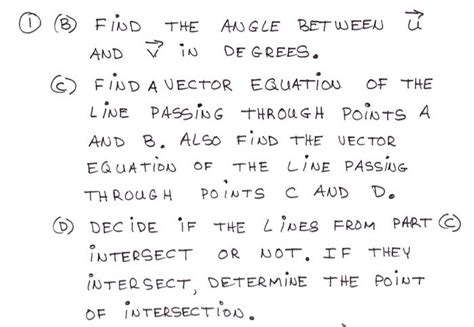 ① (B) FIND THE ANGLE BETWEEN u⃗
AND v⃗ IN DEGREES.
(C) FIND A VECTOR EQUATION OF THE
LINE PASSING THROUGH POINTS A
AND B. ALSO FIND THE VECTOR
EQUATION OF THE LINE PASSING
THROUGH POINTS C AND D.
(D) DECIDE IF THE LINES FROM PART (C)
INTERSECT OR NOT. IF THEY
INTERSECT, DETERMINE THE POINT
OF INTERSECTION.